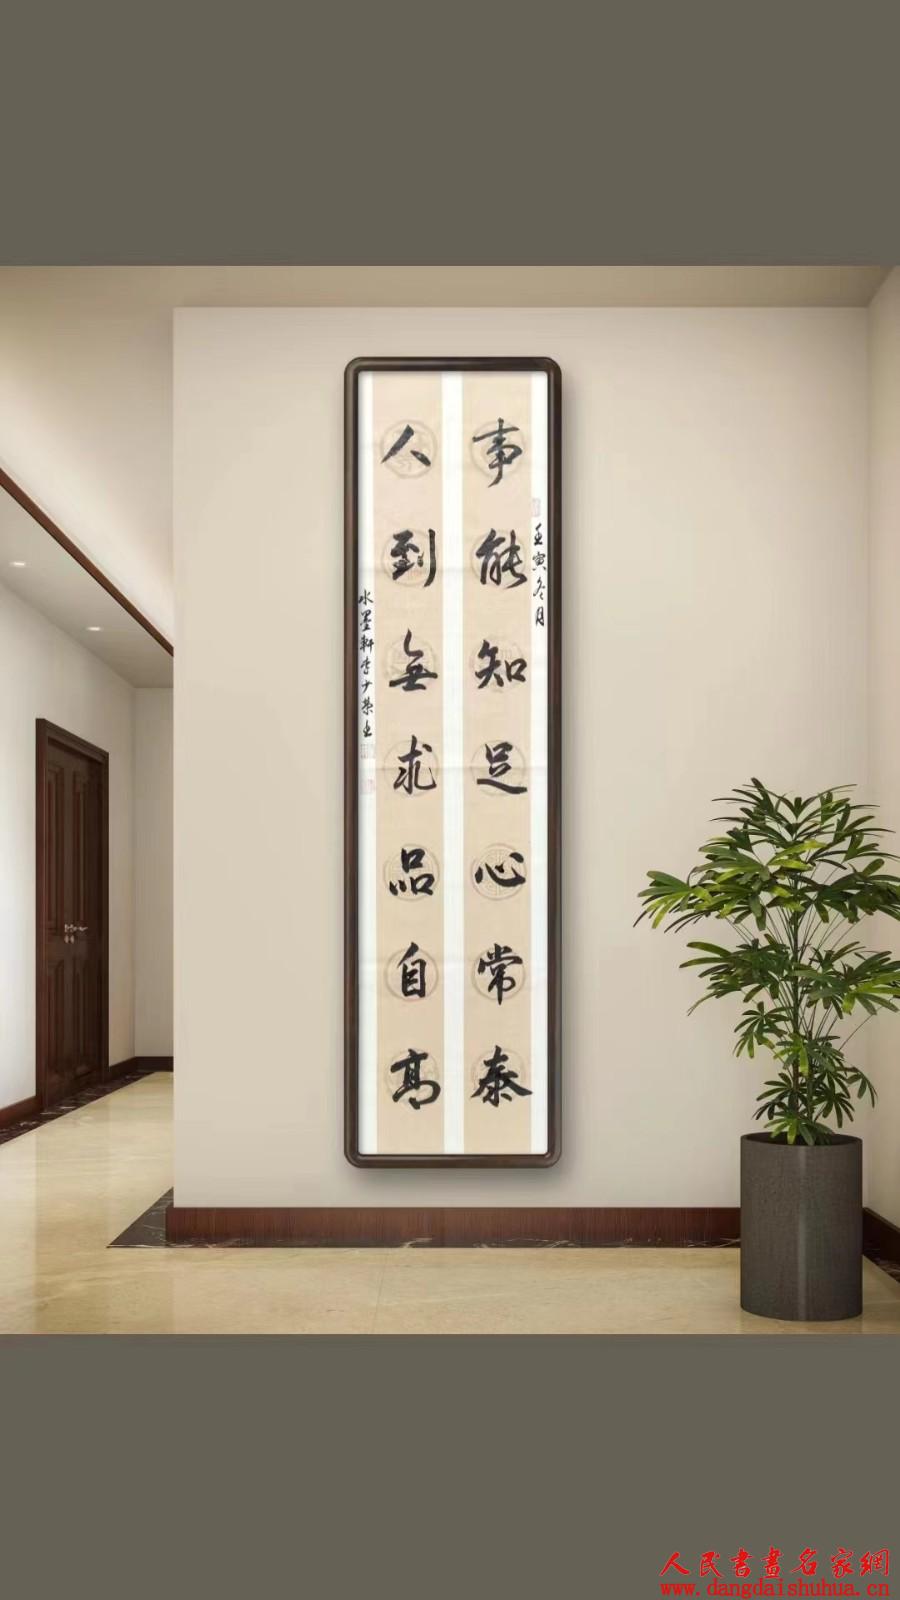 壬寅冬月
事能知足心常泰
人到無求品自高
水墨軒李少荣书
人民書畫名家網
www.dangdaishuhua.cn